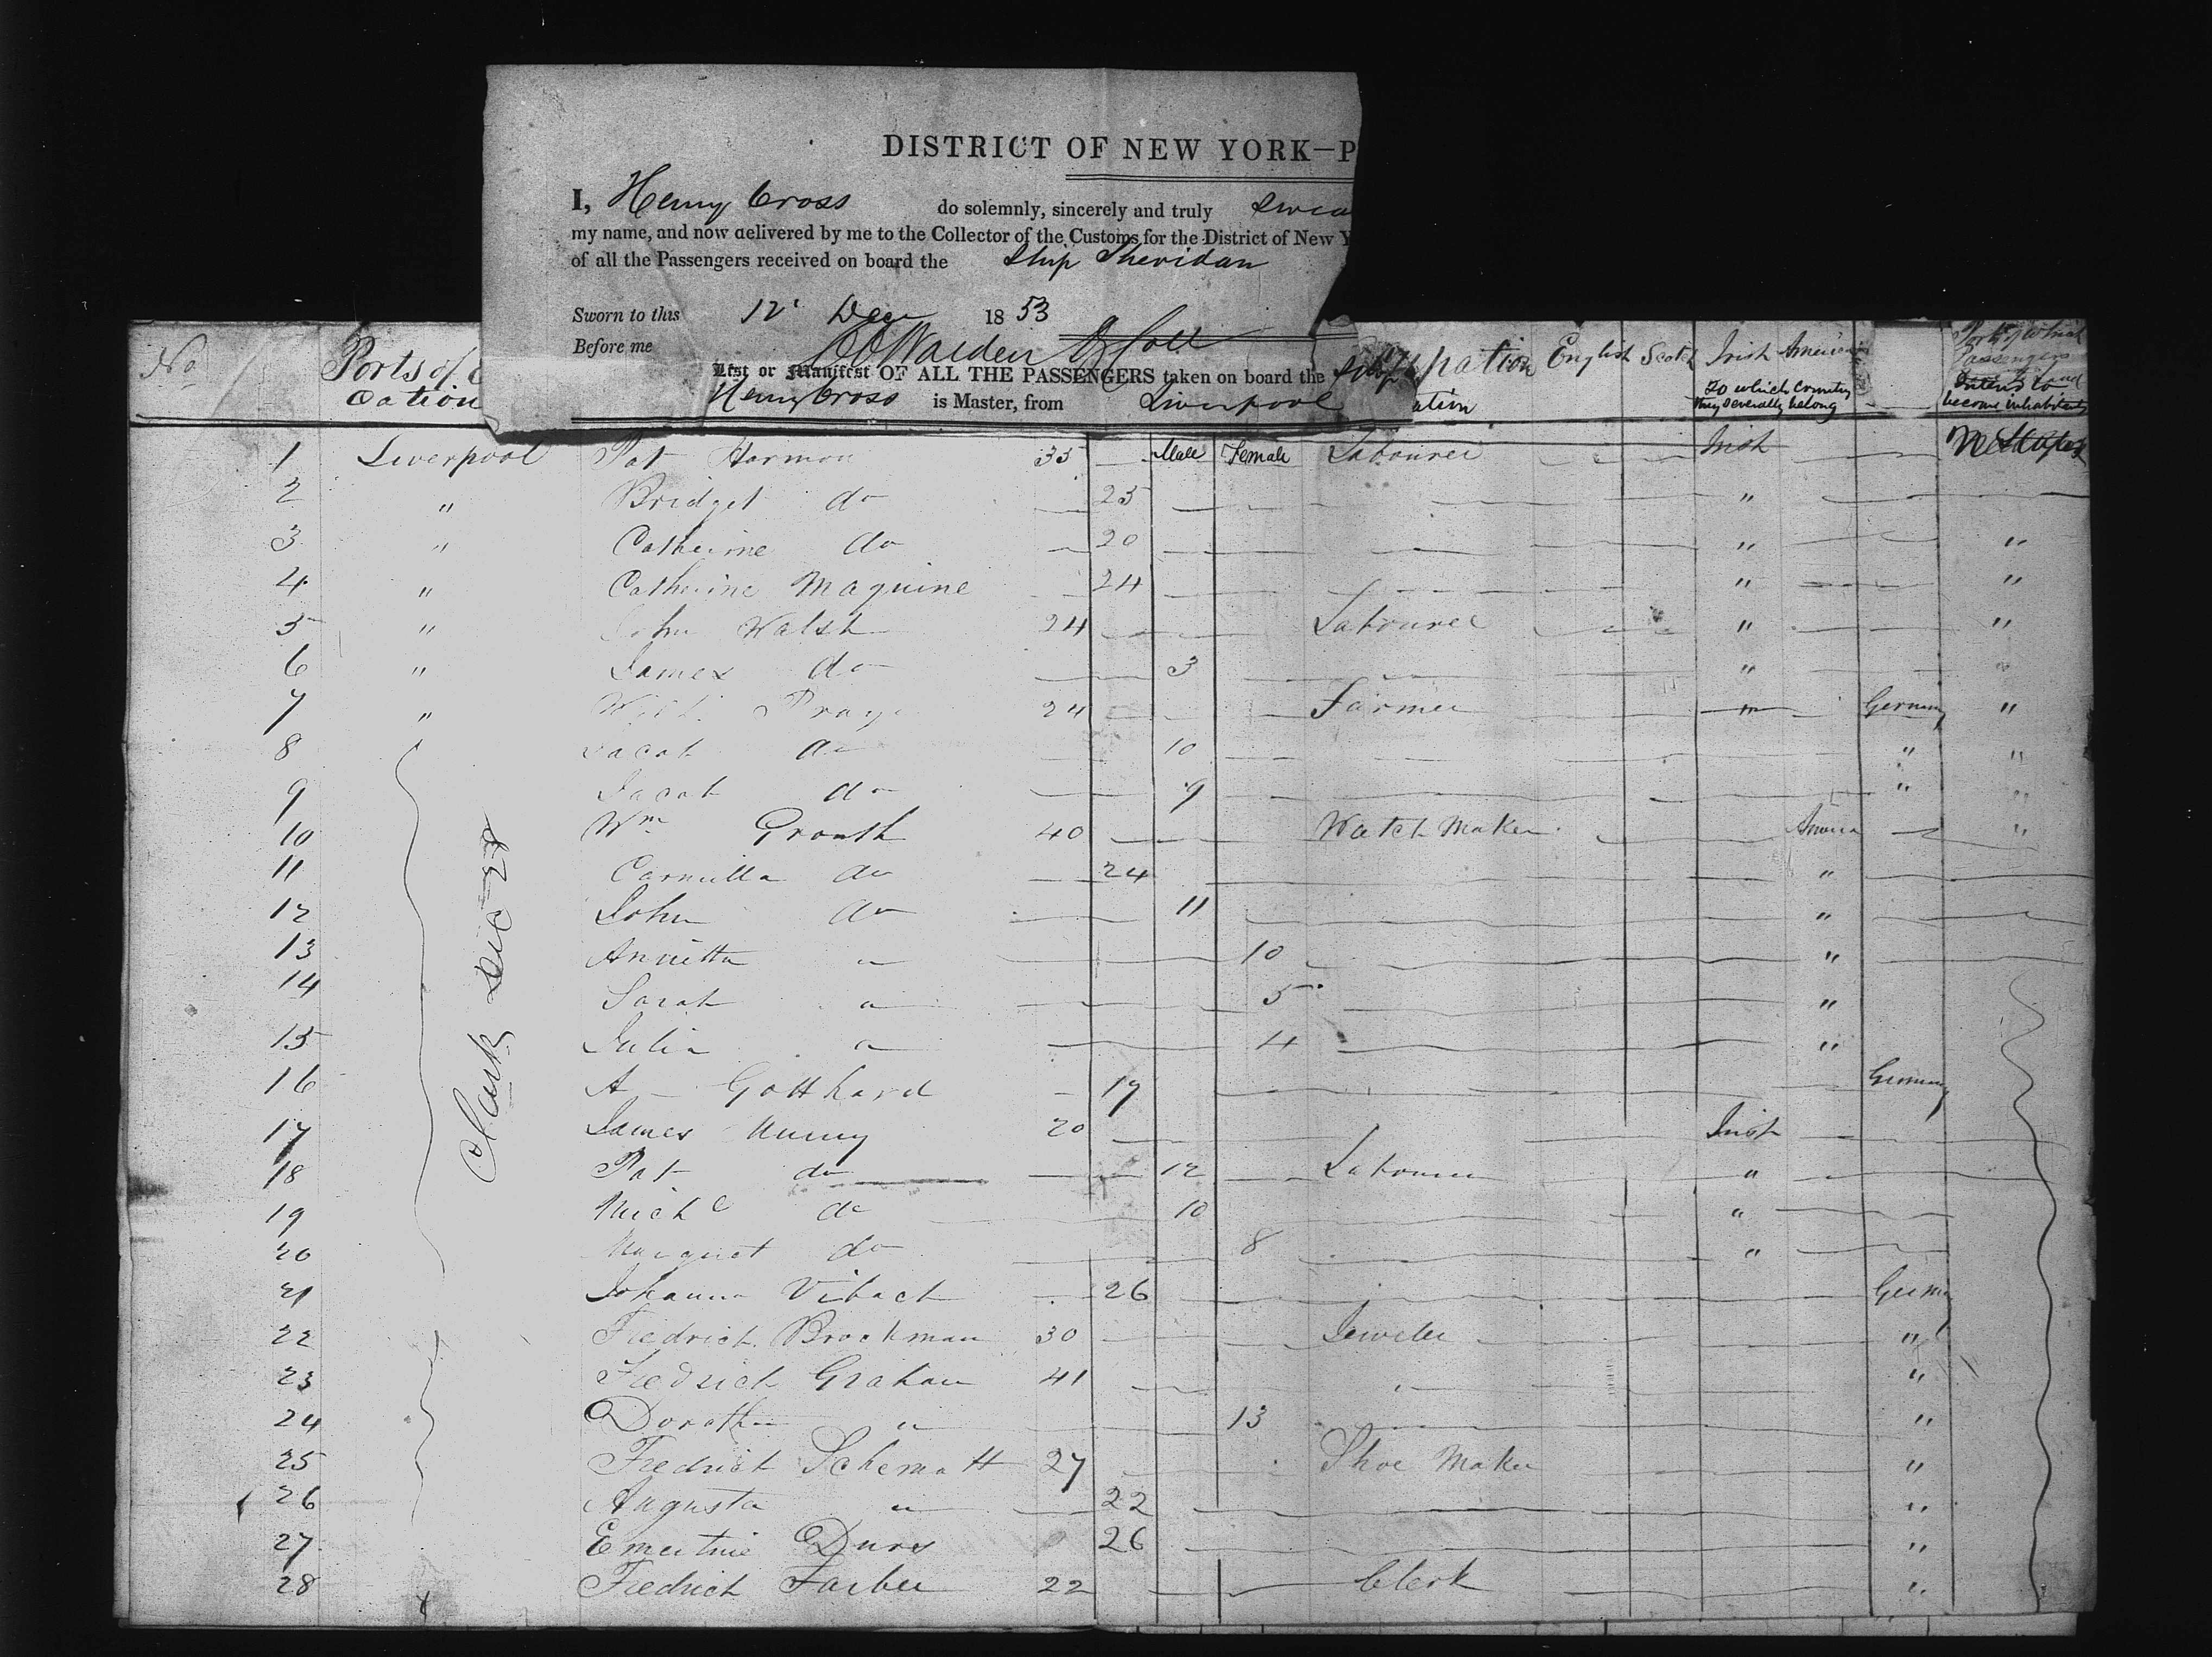 DISTRICT OF NEW YORK—P
I, Henry Cross do solemnly, sincerely and truly swea
my name, and now delivered by me to the Collector of the Customs for the District of New Y
of all the Passengers received on board the Ship Sheridan
Sworn to this 12' Dec 1853
Before me
List or Manifest OF ALL THE PASSENGERS taken on board the Ship
Henry Cross is Master, from Liverpool
No Ports of pation English Scotch Irish American Ports of which Passengers
cation ation To which Country they severally belong intend to become inhabitants
Male Female
1 Liverpool Pat Harmon 35 Labourer Irish
2 " Bridget do 25 "
3 " Catherine do 20 " "
4 " Catherine Maguine 24 " "
5 " John Walsh 24 Labourer " "
6 " James do 3 " "
7 " 24 Farmer Germany "
8 Jacob do 10 " "
9 Jacob do 9 " "
10 Wm Grouth 40 Watch Maker America "
11 Carmilla do 24 "
12 John do 11 "
13 Annitta " 10 "
14 Sarah " 5 "
15 Julia " 4 "
16 A Gotthard 19 Germany
17 James 20 Irish
18 Pat do 12 Labourer "
19 Michl do 10 "
20 Margret do 8 "
21 Johanna Vibach 26 Germany
22 Fredrich Brockman 30 Jeweler "
23 Fredrich Graham 41 " "
24 Dorothea " 13 "
25 Fredrich Schematt 27 Shoe Maker "
26 Augusta " 22 "
27 26 "
28 Fredrich Farber 22 Clerk "
Clark Dec 28